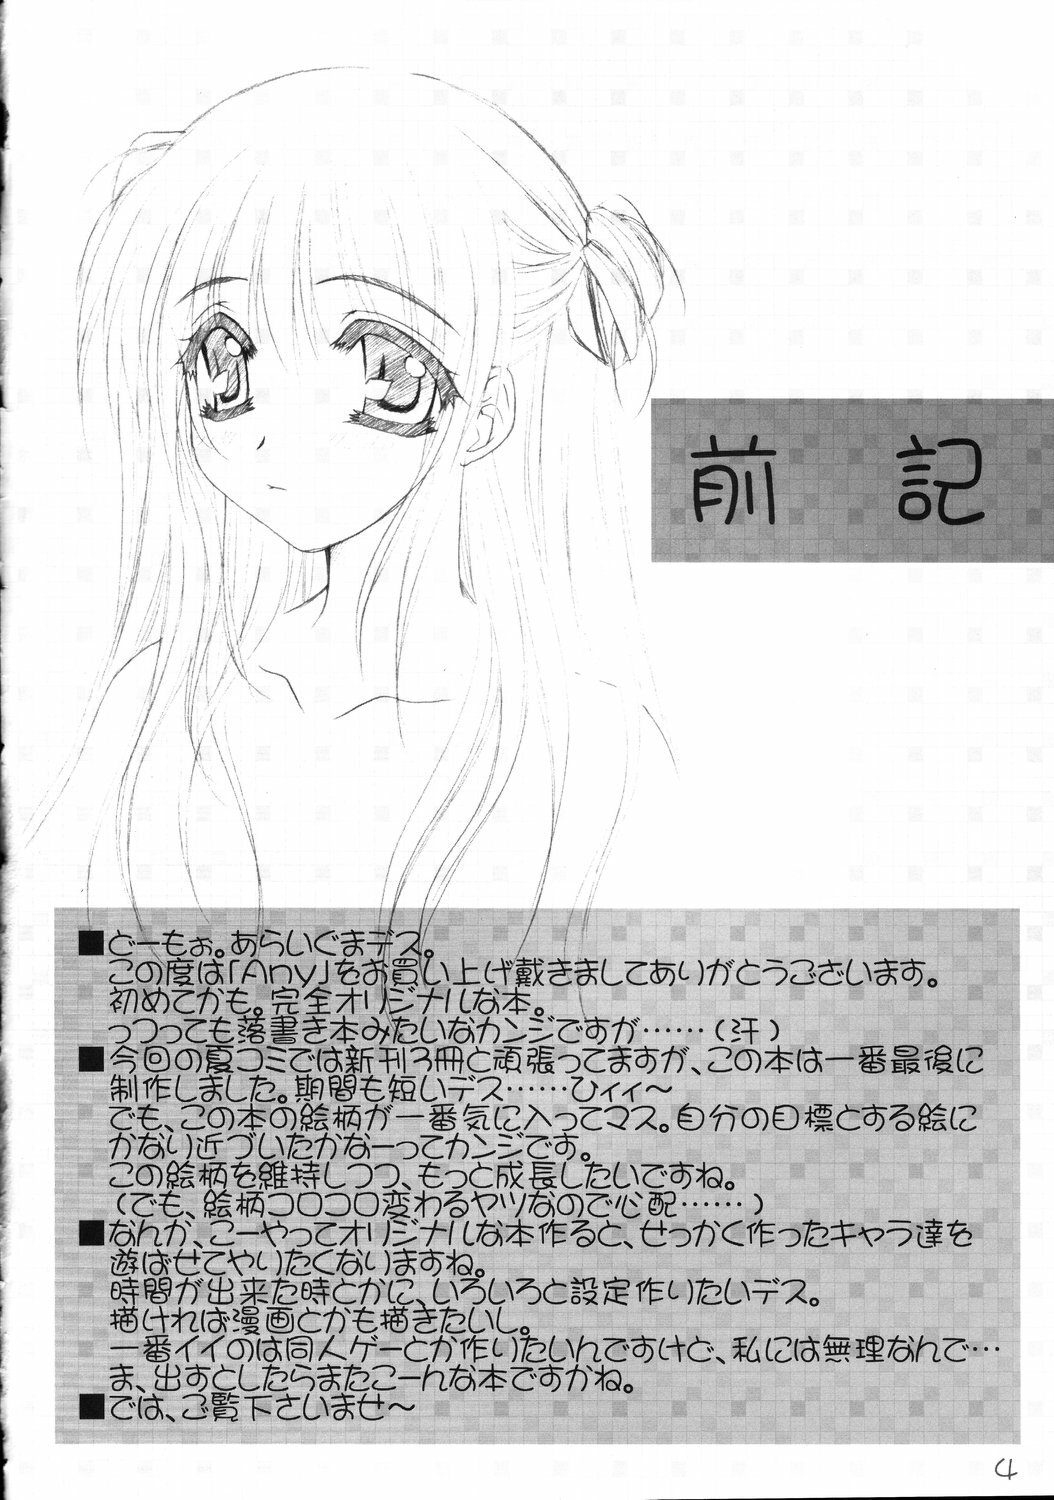 前 記
■どーもぉ。あらいぐまデス。
この度は「Any」をお買い上げ戴きましてありがとうございます。
初めてかも。完全オリジナルな本。
っつっても落書き本みたいなカンジですが……（汗）
■今回の夏コミでは新刊3冊と頑張ってますが、この本は一番最後に
制作しました。期間も短いデス……ひィィ～
でも、この本の絵柄が一番気に入ってマス。自分の目標とする絵に
かなり近づいたかなーってカンジです。
この絵柄を維持しつつ、もっと成長したいですね。
（でも、絵柄コロコロ変わるヤツなので心配……）
■なんか、こーやってオリジナルな本作ると、せっかく作ったキャラ達を
遊ばせてやりたくなりますね。
時間が出来た時とかに、いろいろと設定作りたいデス。
描ければ漫画とかも描きたいし。
一番イイのは同人ゲーとか作りたいんですけど、私には無理なんで…
ま、出すとしたらまたこーんな本ですかね。
■では、ご覧下さいませ～
4